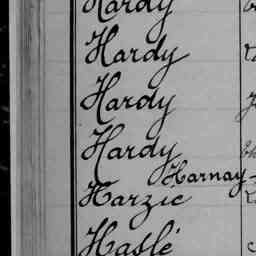 Hardy
Hardy
Hardy
Hardy
Harnay
Harzic
Haslé